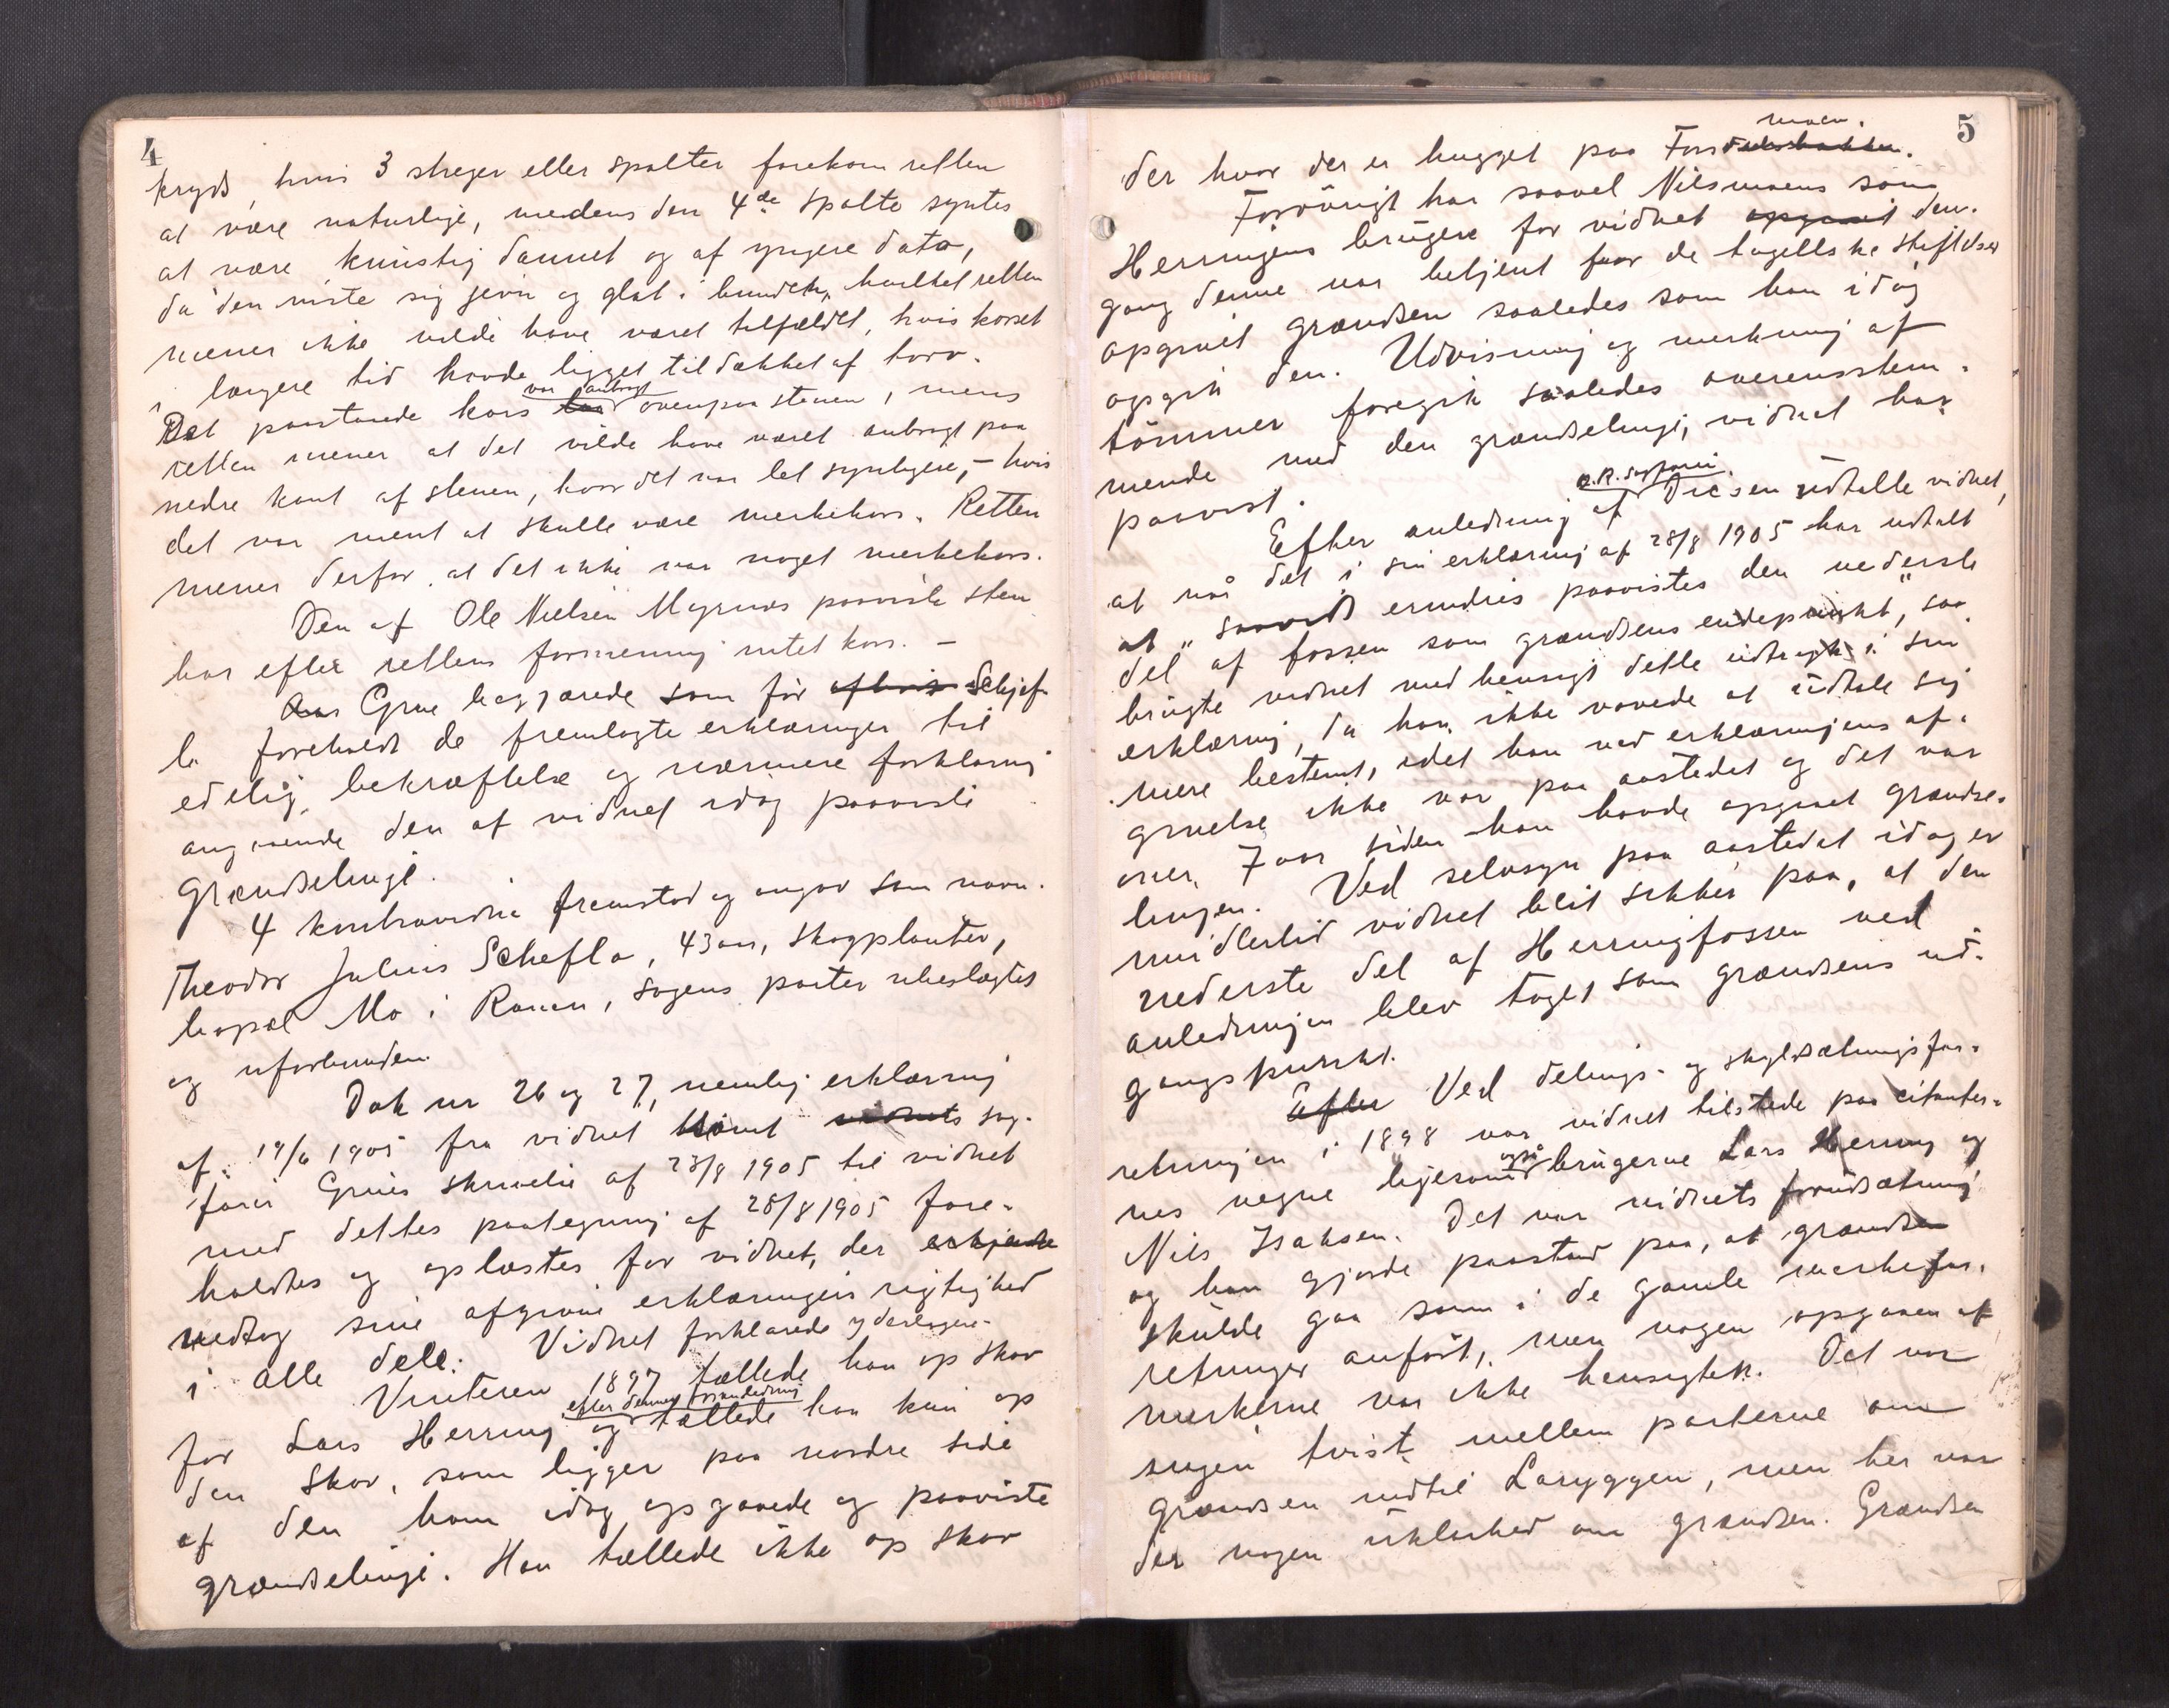 4
kryds, hvis 3 streger eller spalter forekom retten
at være naturlige, medens den 4de spalte syntes
at være kunstig dannet og af yngre dato,
da den viste sig jevn og glat i bunden, hvilket retten
mener ikke vilde have været tilfældet, hvis korset
i længere tid havde ligget tildækket af torv.
Det paastaaede kors laa var anbragt ovenpaa stenen, mens
retten mener at det vilde have været anbragt paa
nedre kant af stenen, hvor det var let synligere, - hvis
det var ment at skulle være merkekors. Retten
mener derfor, at det ikke var noget merkekors.
Den af Ole Nielsen Myrnes paaviste sten
har efter rettens formening intet kors. -
Grue begjærede som før Schjef-
lo foreholdt de fremlagte erklæringer til
edelig bekræftelse og nærmere forklaring
angaaende den af vidnet idag paaviste
grændselinje.
4 kontravidne fremstod og angav som navn
Theodor Julius Schefla, 43 aar, skogplanter,
bopæl Mo i Ranen, sagens parter ubeslægtet
og uforbunden.
Dok nr 26 og 27, nemlig erklæring
af 19/6 1905 fra vidnet samt vidnets sag-
fører Grües skrivelse af 23/8 1905 til vidnet
med dettes paategning af 28/8 1905 fore-
holdtes og oplæstes for vidnet, der erkjendte
vedtog sine afgivne erklæringers rigtighed
i alle dele. Vidnet forklarede yderligere.
Vinteren 1897 tællede han op skov
for Lars Herring og efter dennes foranledning tællede han kun op
den skov, som ligger paa nordre side
af den ham idag opgaaede og paaviste
grændselinje. Han tællede ikke op skov
5
der hvor der er hugget paa Fossdalsbakken. moen.
Forøvrigt har saavel Nilsmoens som
Herringens brugere for vidnet opgaaet den-
gang denne var betjent for de togellske stiftelser
opgaaet grændsen saaledes som han idag
opgik den. Udvisning og merkning af
tømmer foregik saaledes overensstem-
mende med den grændselinje, vidnet har
paavist.
Efter anledning af O.R.sagfører Dresen udtalte vidnet,
at når det i sin erklæring af 28/8 1905 har udtalt
at "saavidt erindres paavistes den nederste
del af fossen som grændsens endepunkt", saa
brugte vidnet med hensigt dette udtryk i sin
erklæring, da han ikke vovede at udtale sig
mere bestemt, idet han ved erklæringens af-
givelse ikke var paa aastedet og det var
over 7 aar siden han havde opgaaet grændse-
linjen. Ved selvsyn paa aastedet idag er
imidlertid vidnet blit sikker paa, at den
nederste del af Herringfossen ved
anledningen blev taget som grændsens ud-
gangspunkt.
Efter Ved delings- og skyldsætningsfor-
retningen i 1898 var vidnet tilstede paa citanter-
nes vegne ligesom også brugerne Lars Herring og
Nils Isaksen. Det var vidnets forudsætning
og han gjorde paastand paa, at grændsen
skulde gaa som i de gamle merkefor-
retninger anført, men nogen opgaaen af
merkerne var ikke hensigten. Det var
ingen tvist mellem parterne om
grændsen indtil Laryggen, men her var
der nogen uklarhed om grændsen. Grændsen